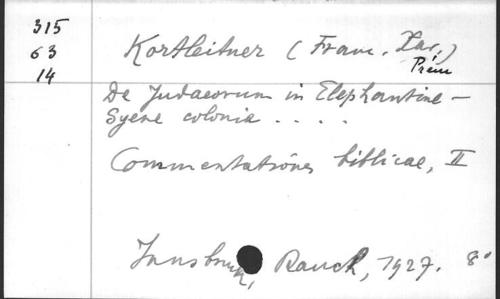 315
63
14
Kortleitner (Franc. Xav.)
Prém
De Judaeorum in Elephantine-
Syene colonia . . . .
Commentationes biblicae, II
Innsbruck, Rauch, 1927. 8°